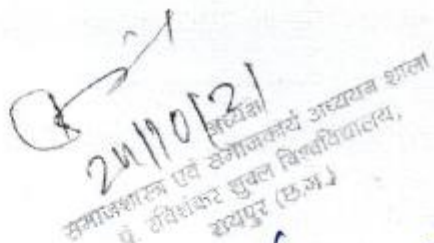 24/10/21
अध्यक्ष
समाजशास्त्र एवं समाजकार्य अध्ययन शाला
पं. रविशंकर शुक्ल विश्वविद्यालय,
रायपुर (छ.ग.)